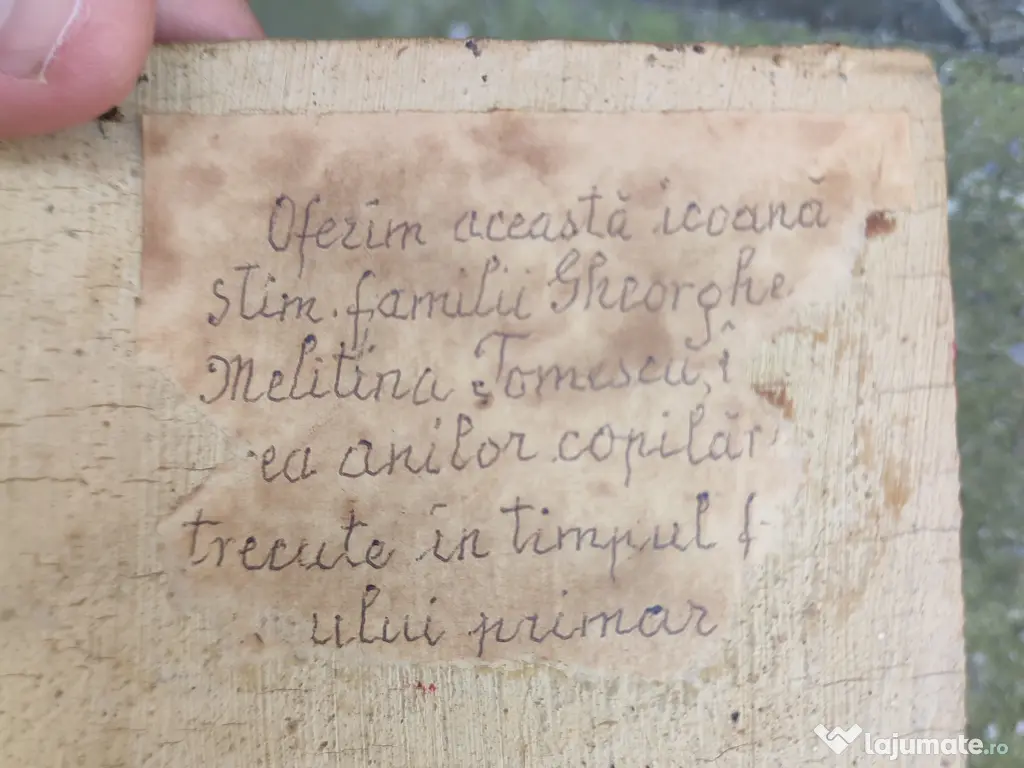 Oferim această icoană
stim. familii Gheorghe
Melitina Tomescu, î
ea anilor copilăr
trecute in timpul f
ului primar
lajumate.ro